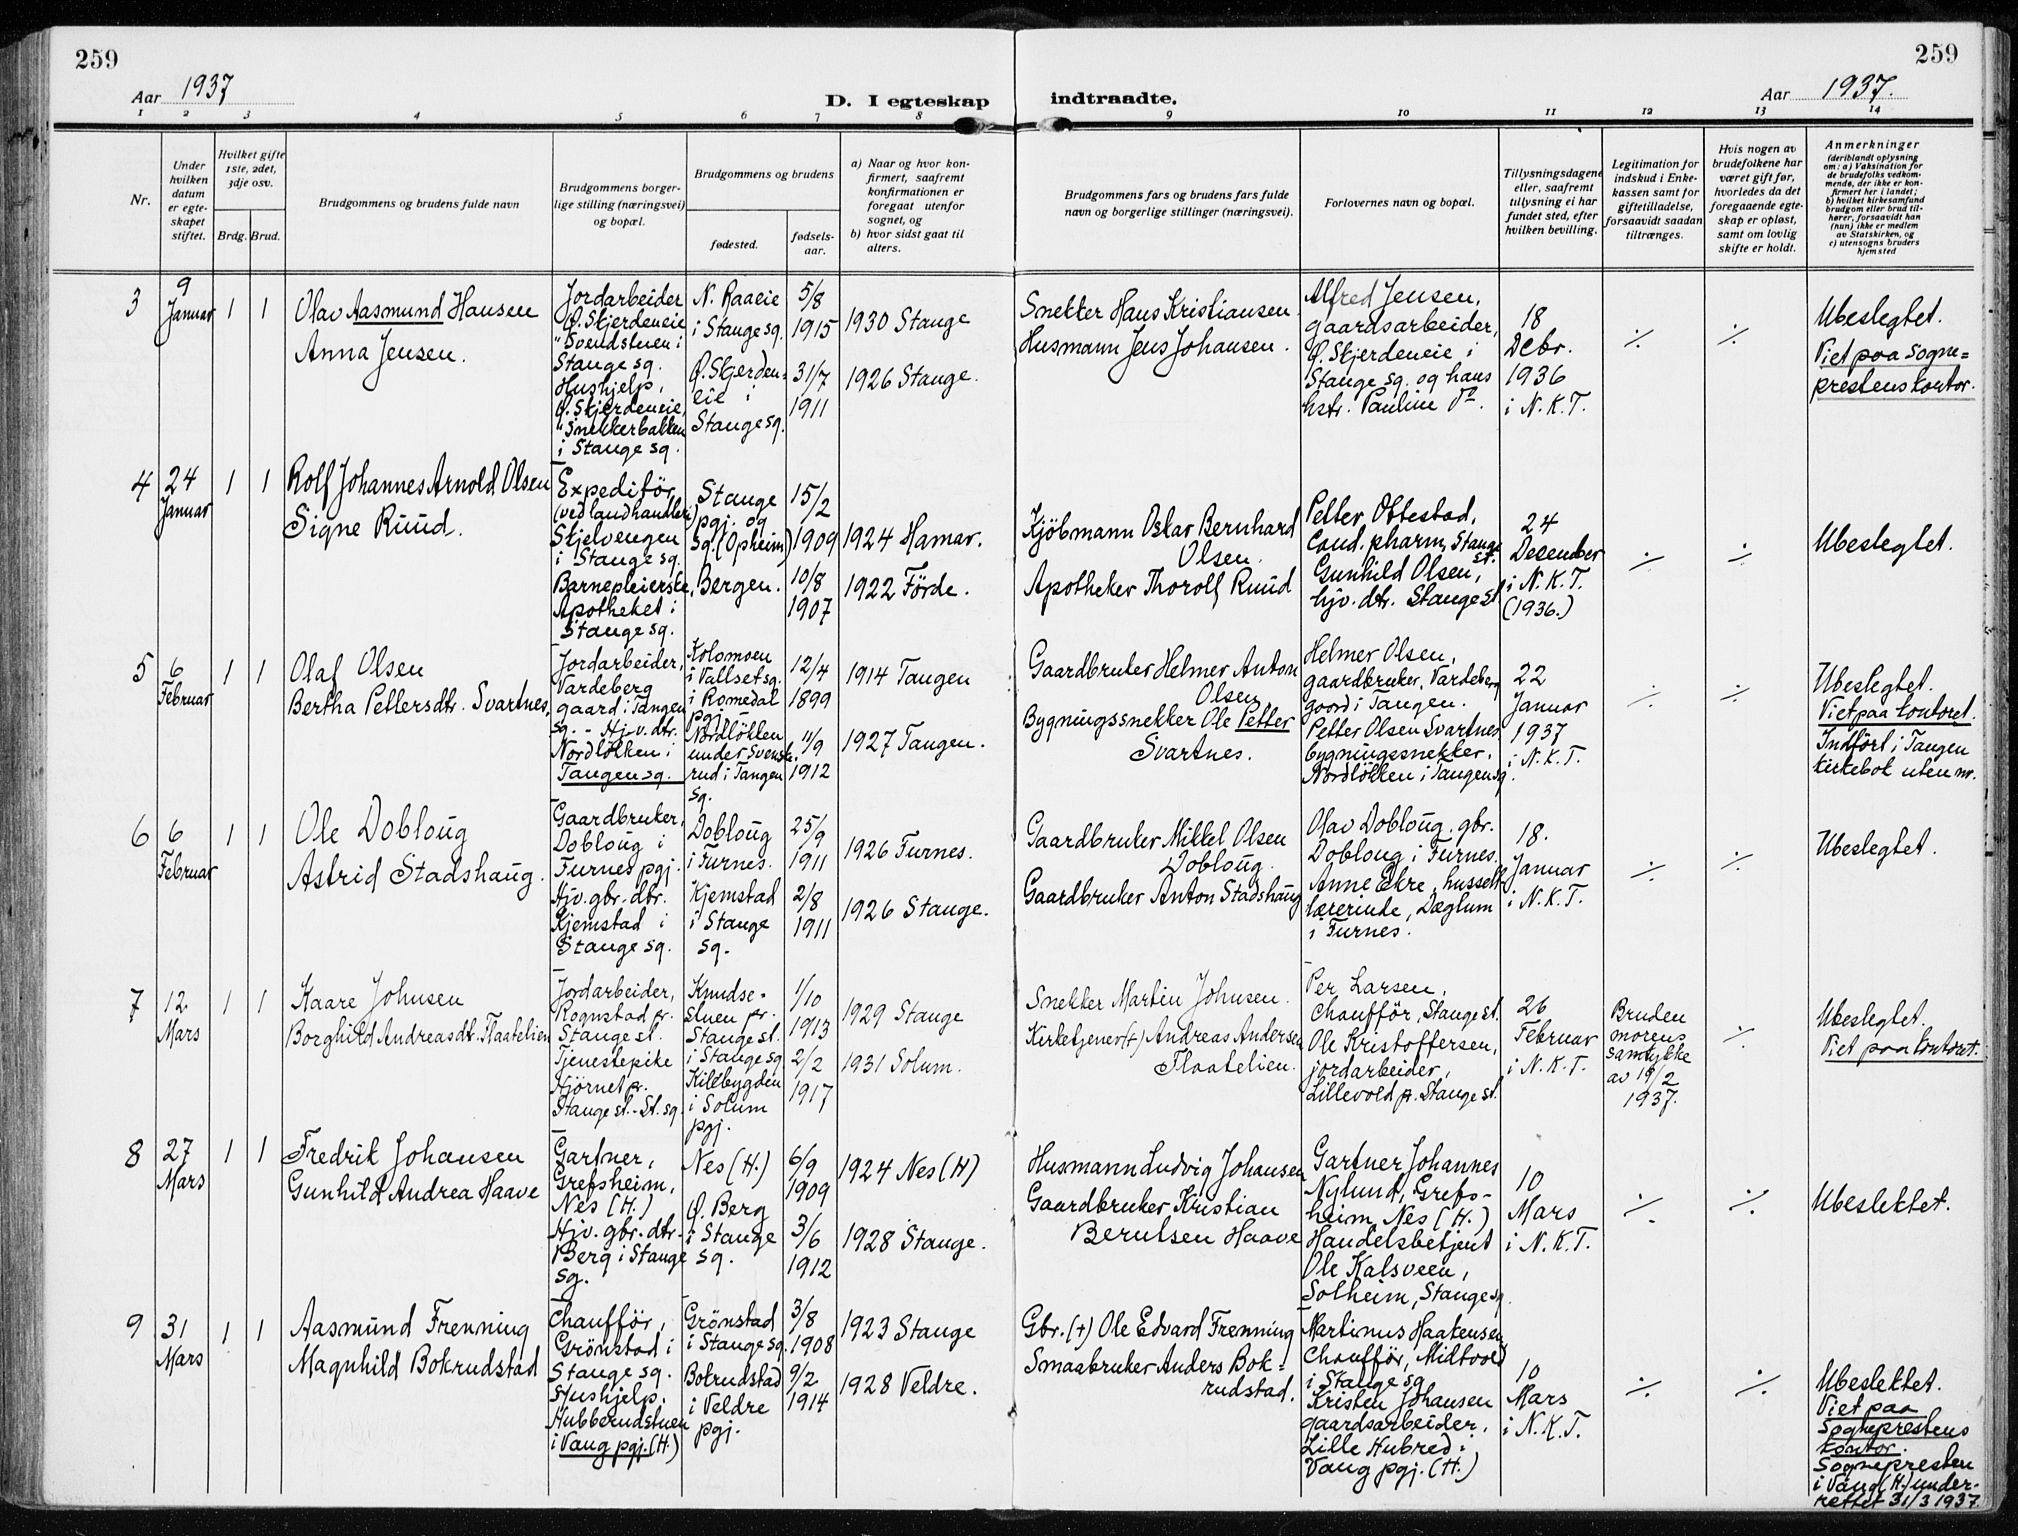 259
Aar 1937
D. I egteskap
indtraadte.
Aar 1937.
259
1 2 3 4 5 6 7 8 9 10 11 12 13 14
Nr.
Under hvilken datum er egteskapet stiftet.
Hvilket gifte 1ste, 2det, 3dje osv.
Brdg. Brud.
Brudgommens og brudens fulde navn
Brudgommens borgerlige stilling (næringsvei) og bopæl.
Brudgommens og brudens
fødested.
fødselsaar.
a) Naar og hvor konfirmert, saafremt konfirmationen er foregaat utenfor sognet, og
b) hvor sidst gaat til alters.
Brudgommens fars og brudens fars fulde navn og borgerlige stillinger (næringsvei).
Forlovernes navn og bopæl.
Tillysningsdagene eller, saafremt tillysning ei har fundet sted, efter hvilken bevilling.
Legitimation for indskud i Enkekassen samt for giftetilladelse, forsaavidt saadan tiltrænges.
Hvis nogen av brudefolkene har været gift før, hvorledes da det foregaaende egteskap er opløst, samt om lovlig skifte er holdt.
Anmerkninger
(deriblandt oplysning om: a) Vaksination for de brudefolks vedkommende, der ikke er konfirmert her i landet; b) hvilket kirkesamfund brudgom eller brud tilhører, forsaavidt han (hun) ikke er medlem av Statskirken, og c) utensogns bruders hjemsted
3
9
Januar
1 1
Olav Aasmund Hansen
Anna Jensen.
Jordarbeider
Ø. Skjerdeneie
"Svendstuen i
Stange sg.
Hushjelp,
Ø. Skjerdeneie,
"Snekkerbakken
i Stange sg.
N. Raaeie
i Stange sg.
Ø. Skjerden=
eie i
Stange sg.
5/8
1915
31/7
1911
1930 Stange
1926 Stange.
Snekker Hans Kristiansen
Husmann Jens Johansen.
Alfred Jensen,
gaardsarbeider,
Ø. Skjerdeneie i
Stange sg. og hans
hstr. Pauline Do.
18
Debr.
1936
i N.K.T.
⁒
⁒
Ubeslegtet.
Viet paa Sogne=
prestens kontor.
4
24
Januar
1 1
Rolf Johannes Arnold Olsen
Signe Ruud.
Expeditør
(ved landhandleri)
Skjelvengen
i Stange sg.
Barnepleierske,
Apotheket i
Stange sg.
Stange
pgj. og
sg. (Opheim)
Bergen.
15/2
1909
10/8
1907
1924 Hamar.
1922 Förde.
Kjöbmann Oskar Bernhard
Olsen.
Apotheker Thorolf Ruud
Petter Ottestad,
Cand. pharm, Stange
st.
Gunhild Olsen,
hjv. dtr. Stange st
24
Desember
i N.K.T.
(1936.)
⁒
⁒
Ubeslegtet.
5
6
Februar
1 1
Olaf Olsen
Bertha Pettersdtr. Svartnes.
Jordarbeider,
Vardeberg
gaard i Tangen
sg. - Hjv. dtr.
Nordløkken i
Tangen sg.
Kolomoen
i Vallset sg.
i Romedal
pgj.
Nordløkken
under Svenke-
rud i Tangen
sg.
12/4
1899
11/9
1912
1914 Tangen
1927 Tangen.
Gaardbruker Helmer Anton
Olsen
Bygningssnekker Ole Petter
Svartnes.
Helmer Olsen,
gaardbruker, Vardeberg
gaard i Tangen.
Petter Olsen Svartnes
bygningssnekker.
Nordløkken i Tangen sg.
22
Januar
1937
i N.K.T.
⁒
⁒
Ubeslegtet.
Viet paa kontoret.
Indført i Tangen
kirkebok uten nr.
6
6
Februar
1 1
Ole Dobloug
Astrid Stadshaug.
Gaardbruker,
Dobloug i
Furnes pgj.
Hjv. gbr. dtr.
Kjemstad i
Stange sg.
Dobloug
i Furnes.
Kjemstad
i Stange
sg.
25/9
1911
2/8
1911
1926 Furnes.
1926 Stange.
Gaardbruker Mikkel Olsen
Dobloug.
Gaardbruker Anton Stadshaug
Olav Dobloug. gbr.
Dobloug i Furnes.
Anne Ekre, husstell
lærerinde, Dæglum
i Furnes.
18.
Januar
i N.K.T.
⁒
⁒
Ubeslegtet.
7
12
Mars
1 1
Kaare Johnsen
Borghild Andreasdt. Flaatelien
Jordarbeider,
Rognstad pr.
Stange st.
Tjenestepike
Hjörnet pr.
Stange st. - St. sg.
Knudse-
stuen pr.
Stange st.
i Stange sg
Kilebygden
i Solum
pgj.
1/10
1913
2/2
1917
1929 Stange
1931 Solum.
Snekker Martin Johnsen.
Kirketjener (+) Andreas Andersen
Flaatelien.
Per Larsen,
Chauffør, Stange st.
Ole Kristoffersen,
jordarbeider,
Lillevold pr. Stange st.
26
Februar
i N.K.T.
Bruden
morens
samtykke
av 19/2
1937.
⁒
Ubeslegtet.
Viet paa kontoret.
8
27
Mars
1 1
Fredrik Johansen
Gunhild Andrea Haave
Gartner,
Grefsheim,
Nes (H.)
Hjv. gbr. dtr.
Berg i Stange
sg.
Nes (H.)
Ø. Berg
i Stange
sg.
6/9
1909
3/6
1912
1924 Nes (H)
1928 Stange.
Husmann Ludvig Johansen
Gaardbruker Kristian
Berntsen Haave
Gartner Johannes
Nylund, Grefs-
heim, Nes (H.)
Handelsbetjent
Ole Kalsveen,
Solheim, Stange sg.
10
Mars
i N.K.T.
⁒
⁒
Ubeslektet.
9
31
Mars
1 1
Aasmund Frenning
Magnhild Bokrudstad
Chauffør,
Grönstad i
Stange sg.
Hushjelp.
Hubberudstuen
i Vang pgj. (H.)
Grönstad
i Stange sg.
Bokrudstad
i Veldre
pgj.
3/8
1908
9/2
1914
1923 Stange
1928 Veldre.
Gbr. (+) Ole Edvard Frenning
Smaabruker Anders Bok=
rudstad.
Martinus Haakensen
Chauffør, Midtvold
i Stange sg.
Kristen Johansen
gaardsarbeider,
Lille Hubred i
Vang pgj. (H.)
10
Mars
i N.K.T.
⁒
⁒
Ubeslektet.
Viet paa
Sogneprestens
kontor.
Sognepresten
i Vang (H.) under-
rettet 31/3 1937.